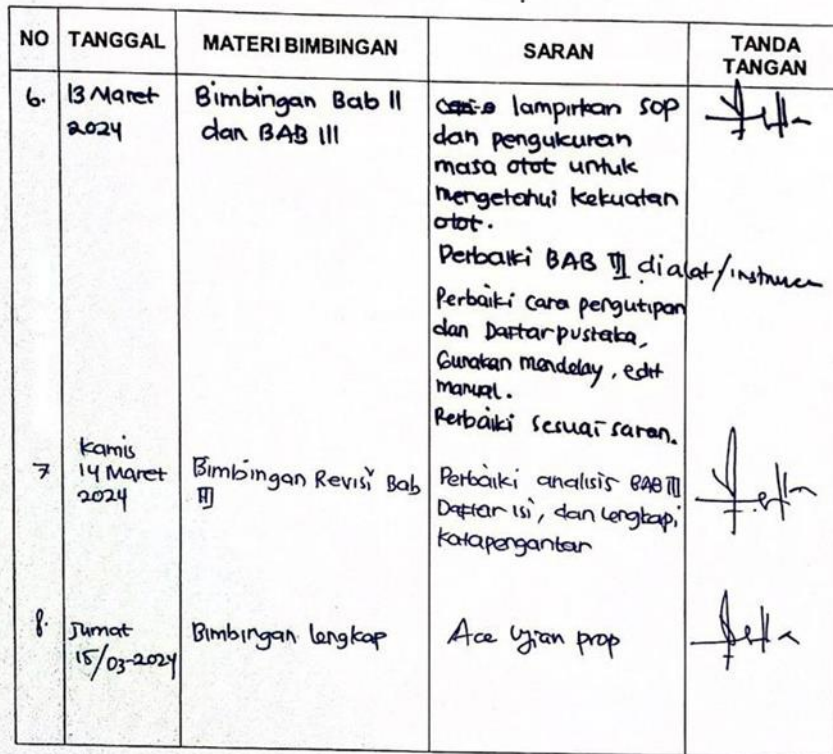 NO TANGGAL MATERI BIMBINGAN SARAN TANDA TANGAN
6. 13 Maret 2024
Bimbingan Bab II
dan BAB III
lampirkan SOP
dan pengukuran
masa otot untuk
mengetahui kekuatan
otot.
Perbaiki BAB III di alat/
Perbaiki cara pengutipan
dan Daftar pustaka,
Gunakan mendelay, edit
manual.
Perbaiki sesuai saran.
7 Kamis
14 Maret
2024
Bimbingan Revisi Bab
III
Perbaiki analisis BAB III
Daftar isi, dan lengkapi
katapengantar
8. Jumat
15/03-2024
Bimbingan lengkap
Acc Ujian prop